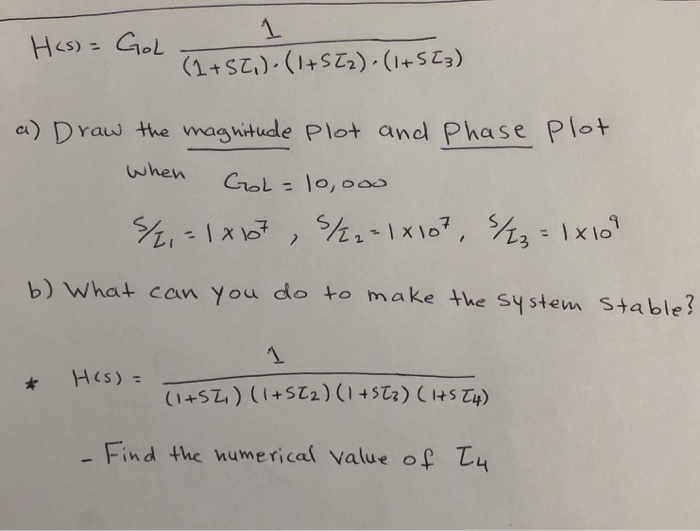 H(s) = GOL 1 / (1+Sτ1).(1+Sτ2).(1+Sτ3)
a) Draw the magnitude plot and phase plot
when GOL = 10,000
S/τ1 = 1 x 10^7 , S/τ2 = 1 x 10^7 , S/τ3 = 1 x 10^9
b) What can you do to make the system stable?
* H(s) = 1 / (1+Sτ1) (1+Sτ2) (1+Sτ3) (1+Sτ4)
- Find the numerical value of τ4